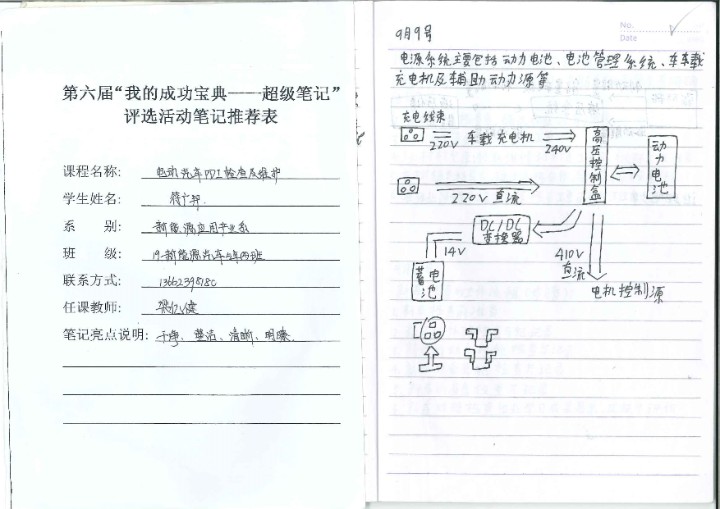 第六届“我的成功宝典——超级笔记”
评选活动笔记推荐表
课程名称: 电动汽车PDI检查及维护
学生姓名:
系 别: 新能源应用产业系
班 级: 19-新能源汽车
联系方式:
任课教师:
笔记亮点说明: 干净、整洁、清晰、明瞭.
No.
Date
9月9号
电源系统主要包括动力电池、电池管理系统、车车载
充电机及辅助动力源等
充电线束
220V
车载充电机
240V
高压控制盒
动力电池
220V直流
DC/DC
变换器
14V
410V
直流
蓄电池
电机控制源